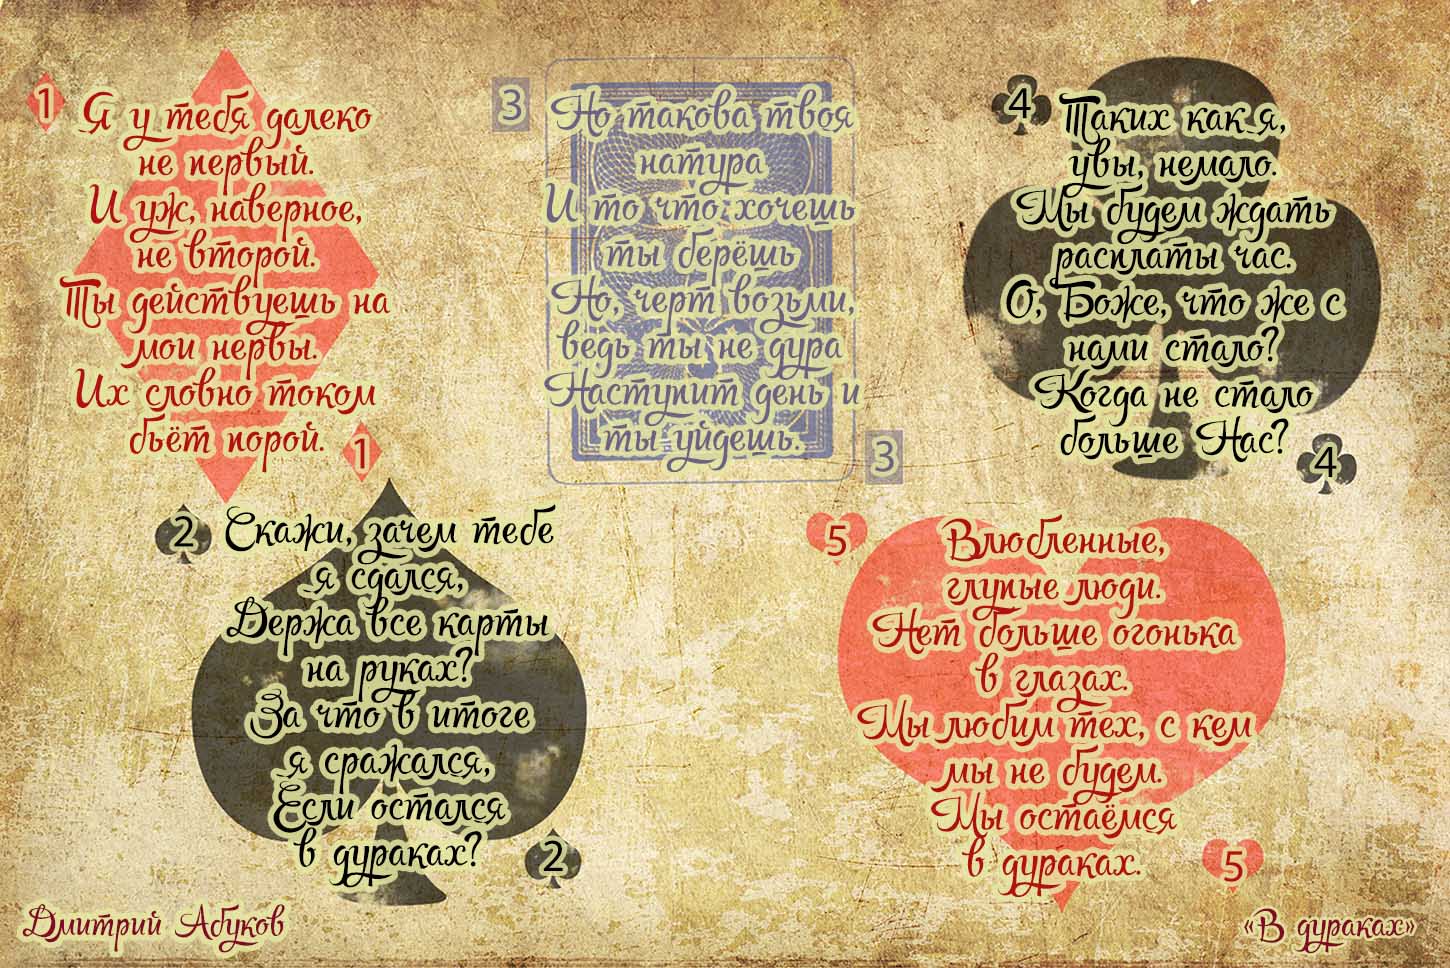 1
Я у тебя далеко
не первый.
И уж, наверное,
не второй.
Ты действуешь на
мои нервы.
Их словно током
бьёт порой.
1
2
Скажи, зачем тебе
я сдался,
Держа все карты
на руках?
За что в итоге
я сражался,
Если остался
в дураках?
2
3
Но такова твоя
натура
И то что хочешь
ты берёшь
Но, черт возьми,
ведь ты не дура
Наступит день и
ты уйдешь.
3
4
Таких как я,
увы, немало.
Мы будем ждать
расплаты час.
О, Боже, что же с
нами стало?
Когда не стало
больше Нас?
4
5
Влюбленные,
глупые люди.
Нет больше огонька
в глазах.
Мы любим тех, с кем
мы не будем.
Мы остаёмся
в дураках.
5
Дмитрий Абуков
«В дураках»